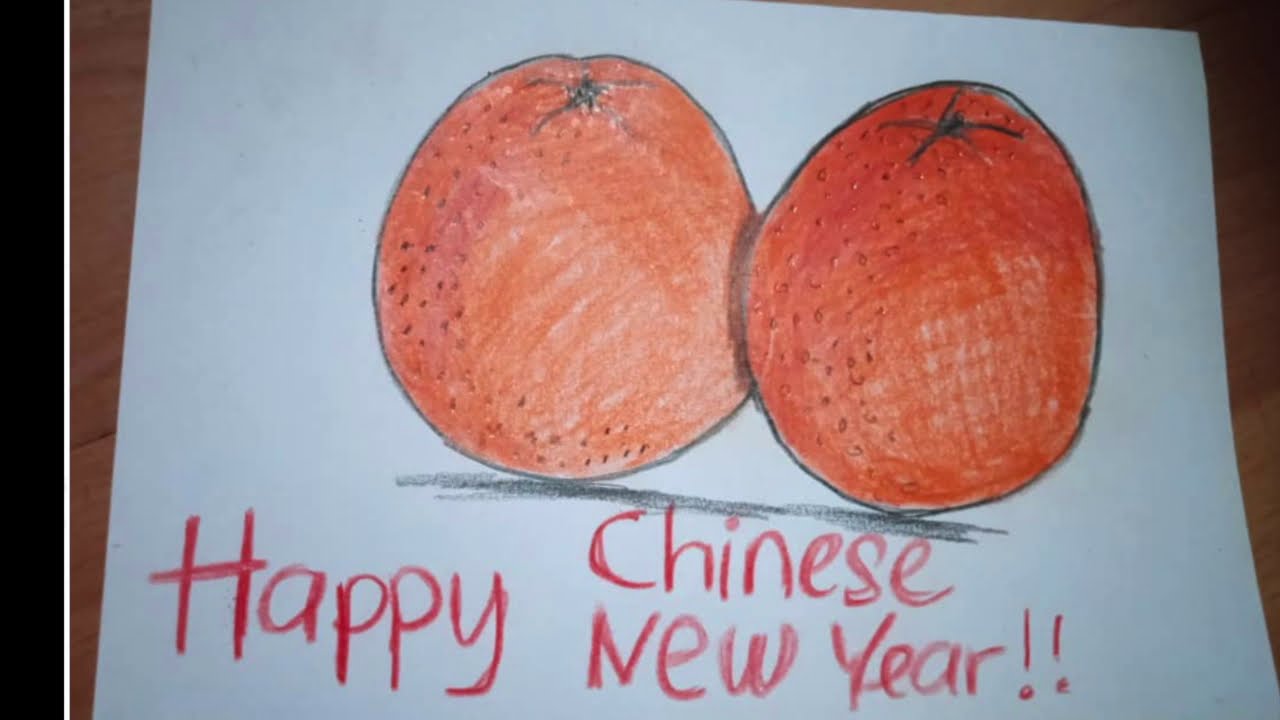 Happy Chinese
New Year!!